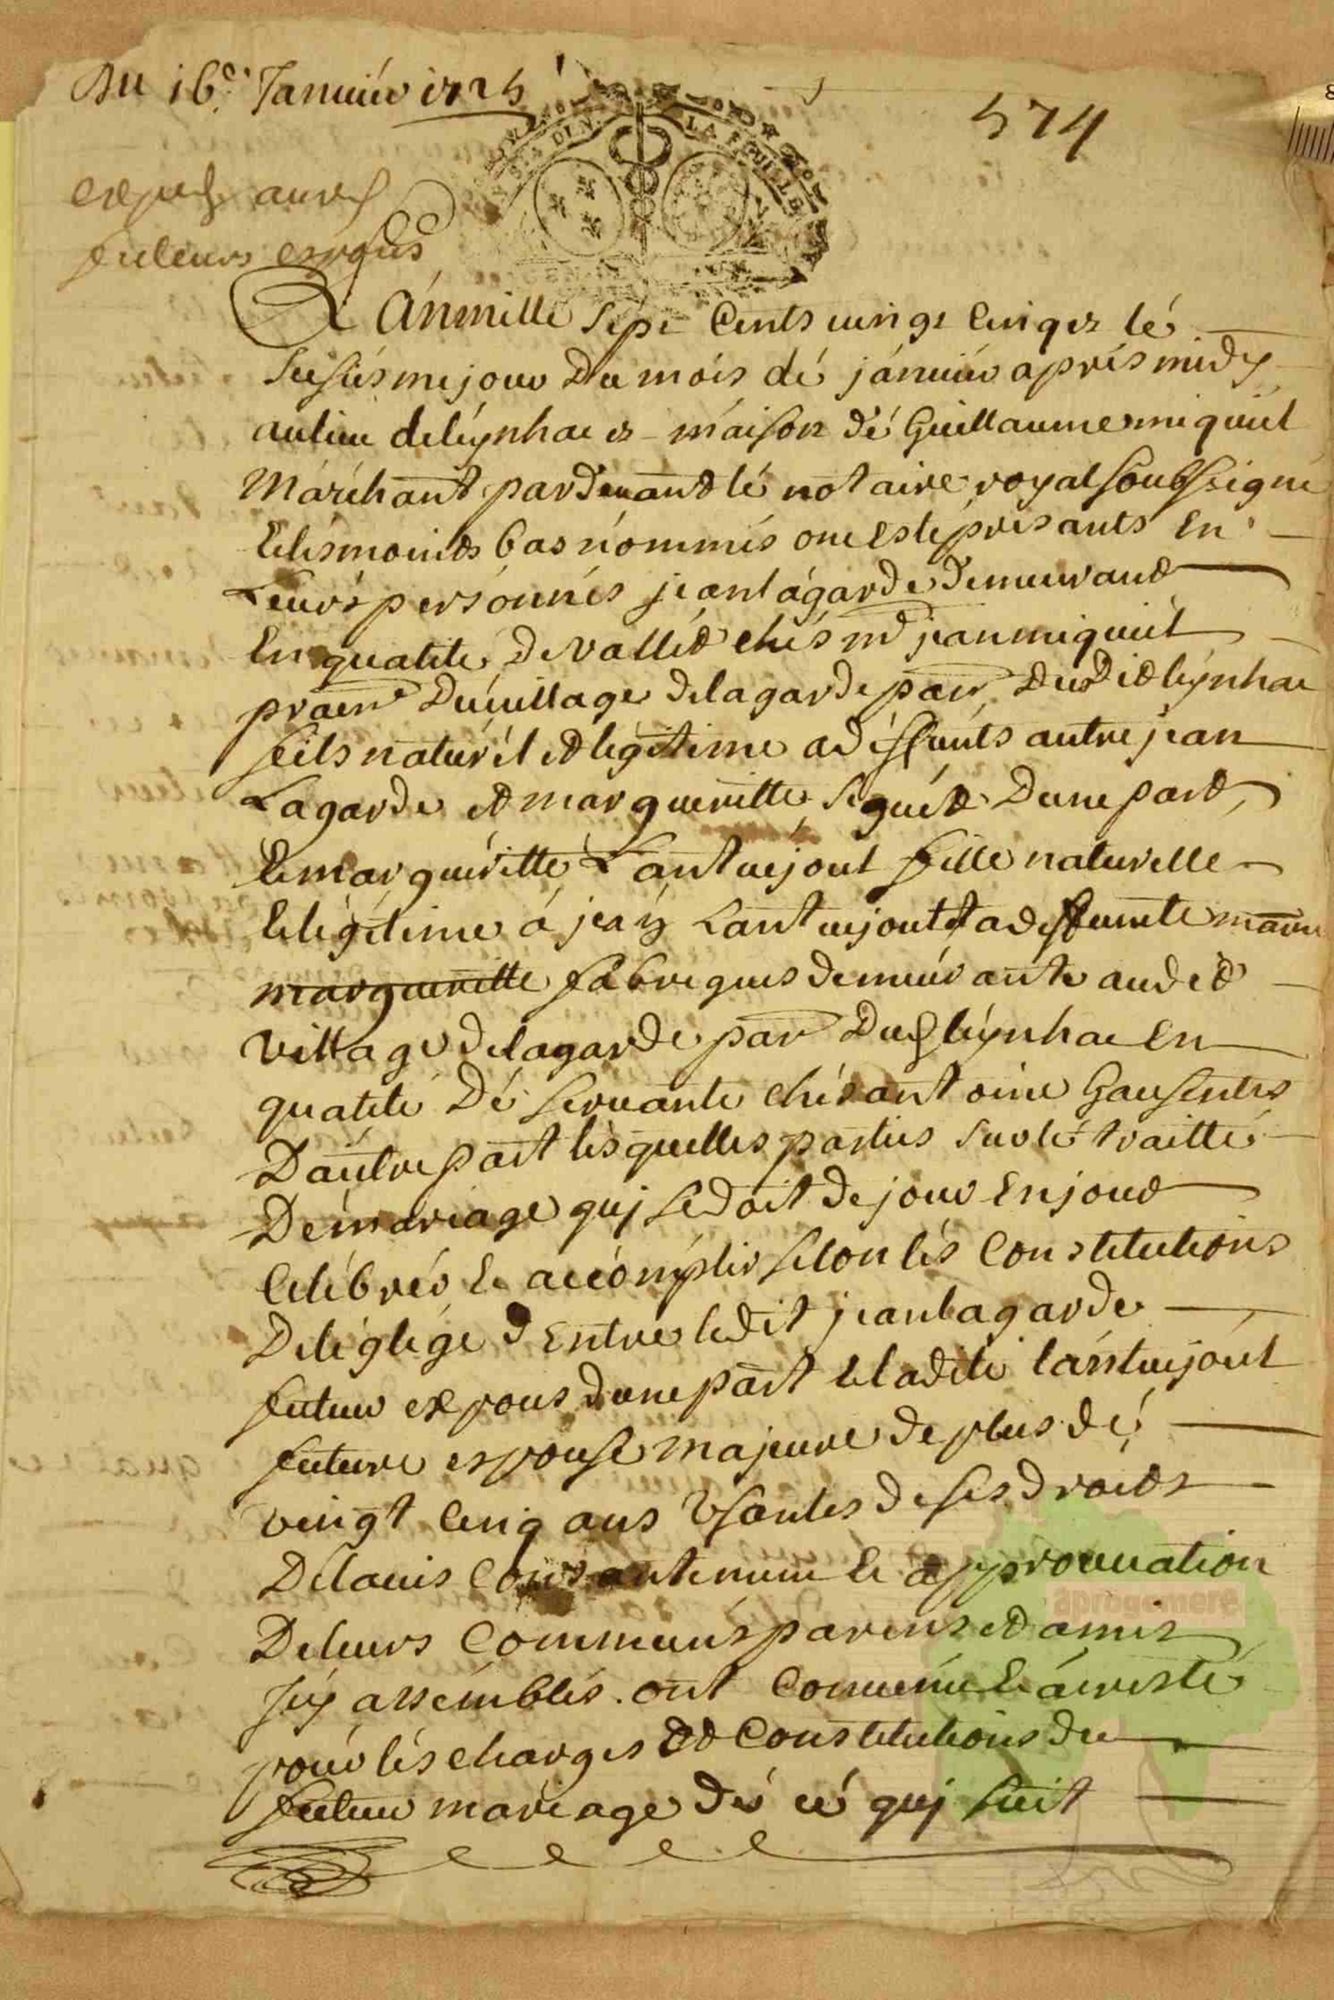 Du 16e Januier 1725
574
expedie aux
futeurs espous
L'an mille sept cents uingt cinq et le
seisiesme jour du mois de januier apres midy
au lieu de leynhac et maison de Guillaume miquiel
marchant par deuant le notaire royal soubsigné
et tesmoins bas nommés ont esté presants en
leurs personnes jean lagarde demeurant
en qualité de vallet chés me jean miquiel
praen du uillage de lagarde parr dudit leynhac
fils naturel et legitime a deffunts autre jean
Lagarde et margueritte siguest d'une part
et margueritte Lantuejoul fille naturelle
et legitime a jean Lantuejoul et a deffunte marie
margueritte fabregues demeurante audit
village de lagarde parr dud leynhac en
qualité de seruante chés antoine Gausentes
d'autre part lesquelles parties sur le traitté
de mariage quj se doit de jour en jour
celebrer et accomplir selon les Constitutions
de leglege d'entre ledit jean lagarde
futur expous d'une part et ladite lantuejoul
future espouse majeure de plus de
vingt cinq ans Vsantes de ses droits
de lauis consantement et approuuation
de leurs communs parens et amis
ssy assembles ont conuenu et arresté
pour les charges et Constitutions du
futeur mariage de ce quj suit
aprogemere